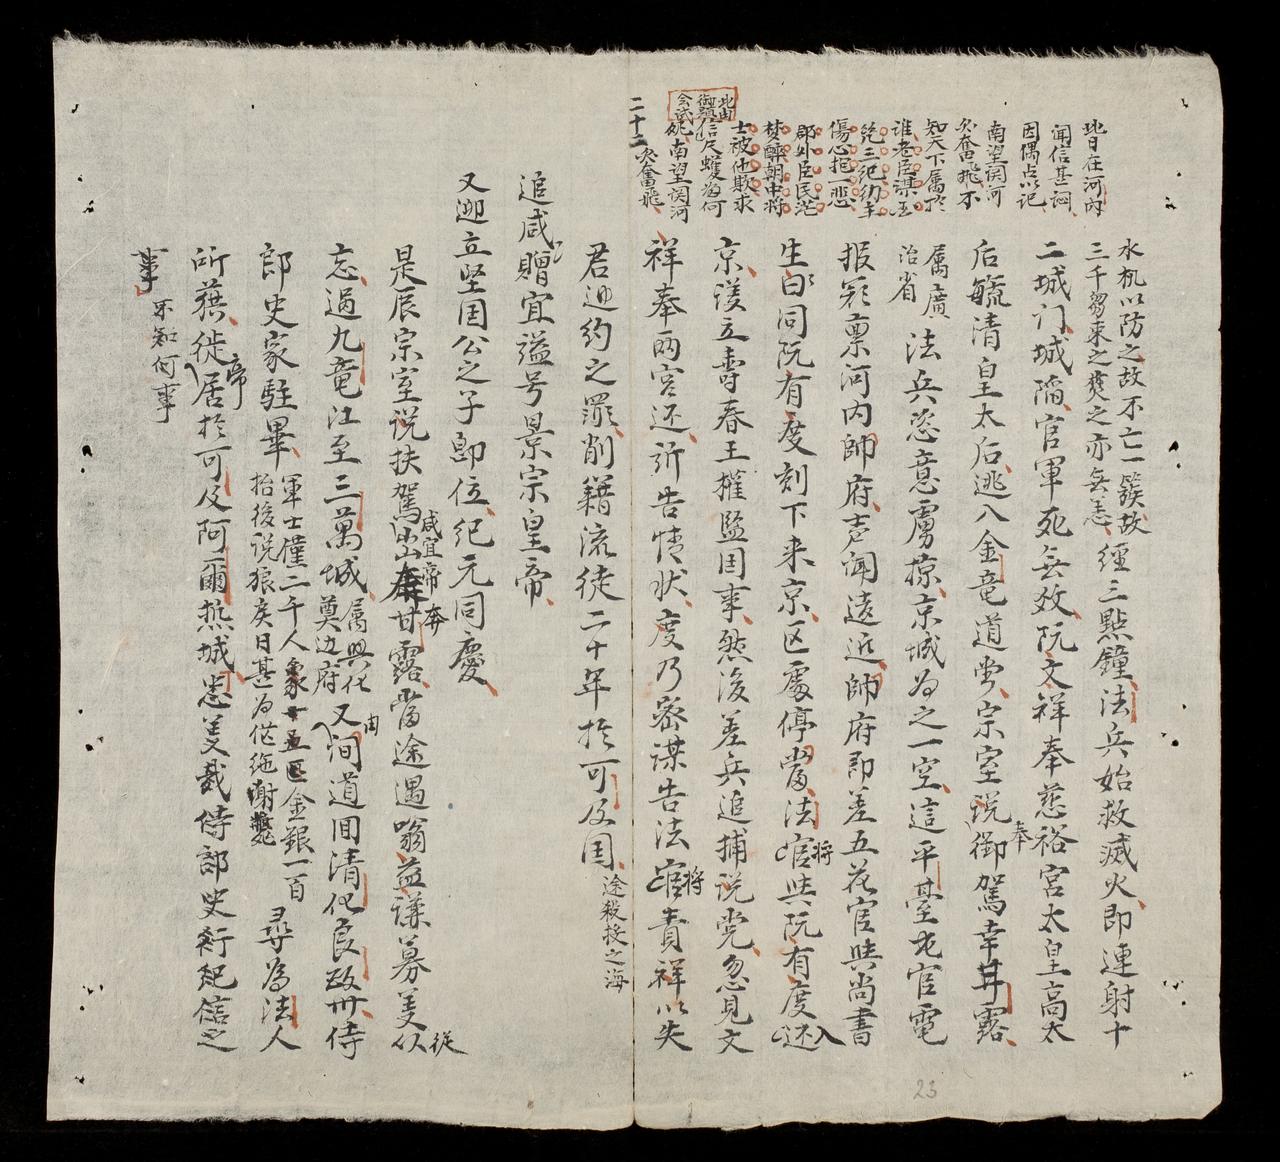 此日在河內
聞信甚詞
因偶占以記
南望関河
欠奮飛不
知天下属於
誰老臣謀王
絶三纪幼主
傷心拒一悲
郡外臣民茫
梦醉朝中将
士被他欺求
信尺蠖為何
南望関河
欠奮飛
二十二
水机以防之故不亡一簇故
三千芻束之焚之亦無恙
經三點鐘法兵始救滅火即連射十
二城门城陷官軍死無效阮文祥奉慈裕宮太皇高太
后毓清皇太后逃入金竜道堂宗室说奉御駕幸甘露
属廣
治省
法兵恣意虜掠京城为之一空這平臺屯官電
报彩禀河内帥府声闻遠近帥府即差五花官與尚書
生白同阮有度刻下来京区處停當法将官與阮有度还入
京議立壽春王權監国事然後差兵追捕说党忽見文
祥奉兩宫还訴告情状度乃密谋告法将官責祥以失
君迎约之罪削籍流徒二十年於可及国
途殺投之海
追咸贈宜謚号景宗皇帝
又迎立坚国公之子即位纪元同慶
是辰宗室说扶駕咸宜帝出奔甘露當途遇嗡益谦募美以從
忘過九竜江至三萬城
属興化
奠边府
又由间道囬清化良政州侍
郎史家駐畢
軍士僅二千人象十五匹金銀一百
抬後说狼戾日甚为偺絁謝斃
尋為法人
所蕪帝徙居於可及阿爾热城患美裁侍部史衍紀信之
事
不知何事
23